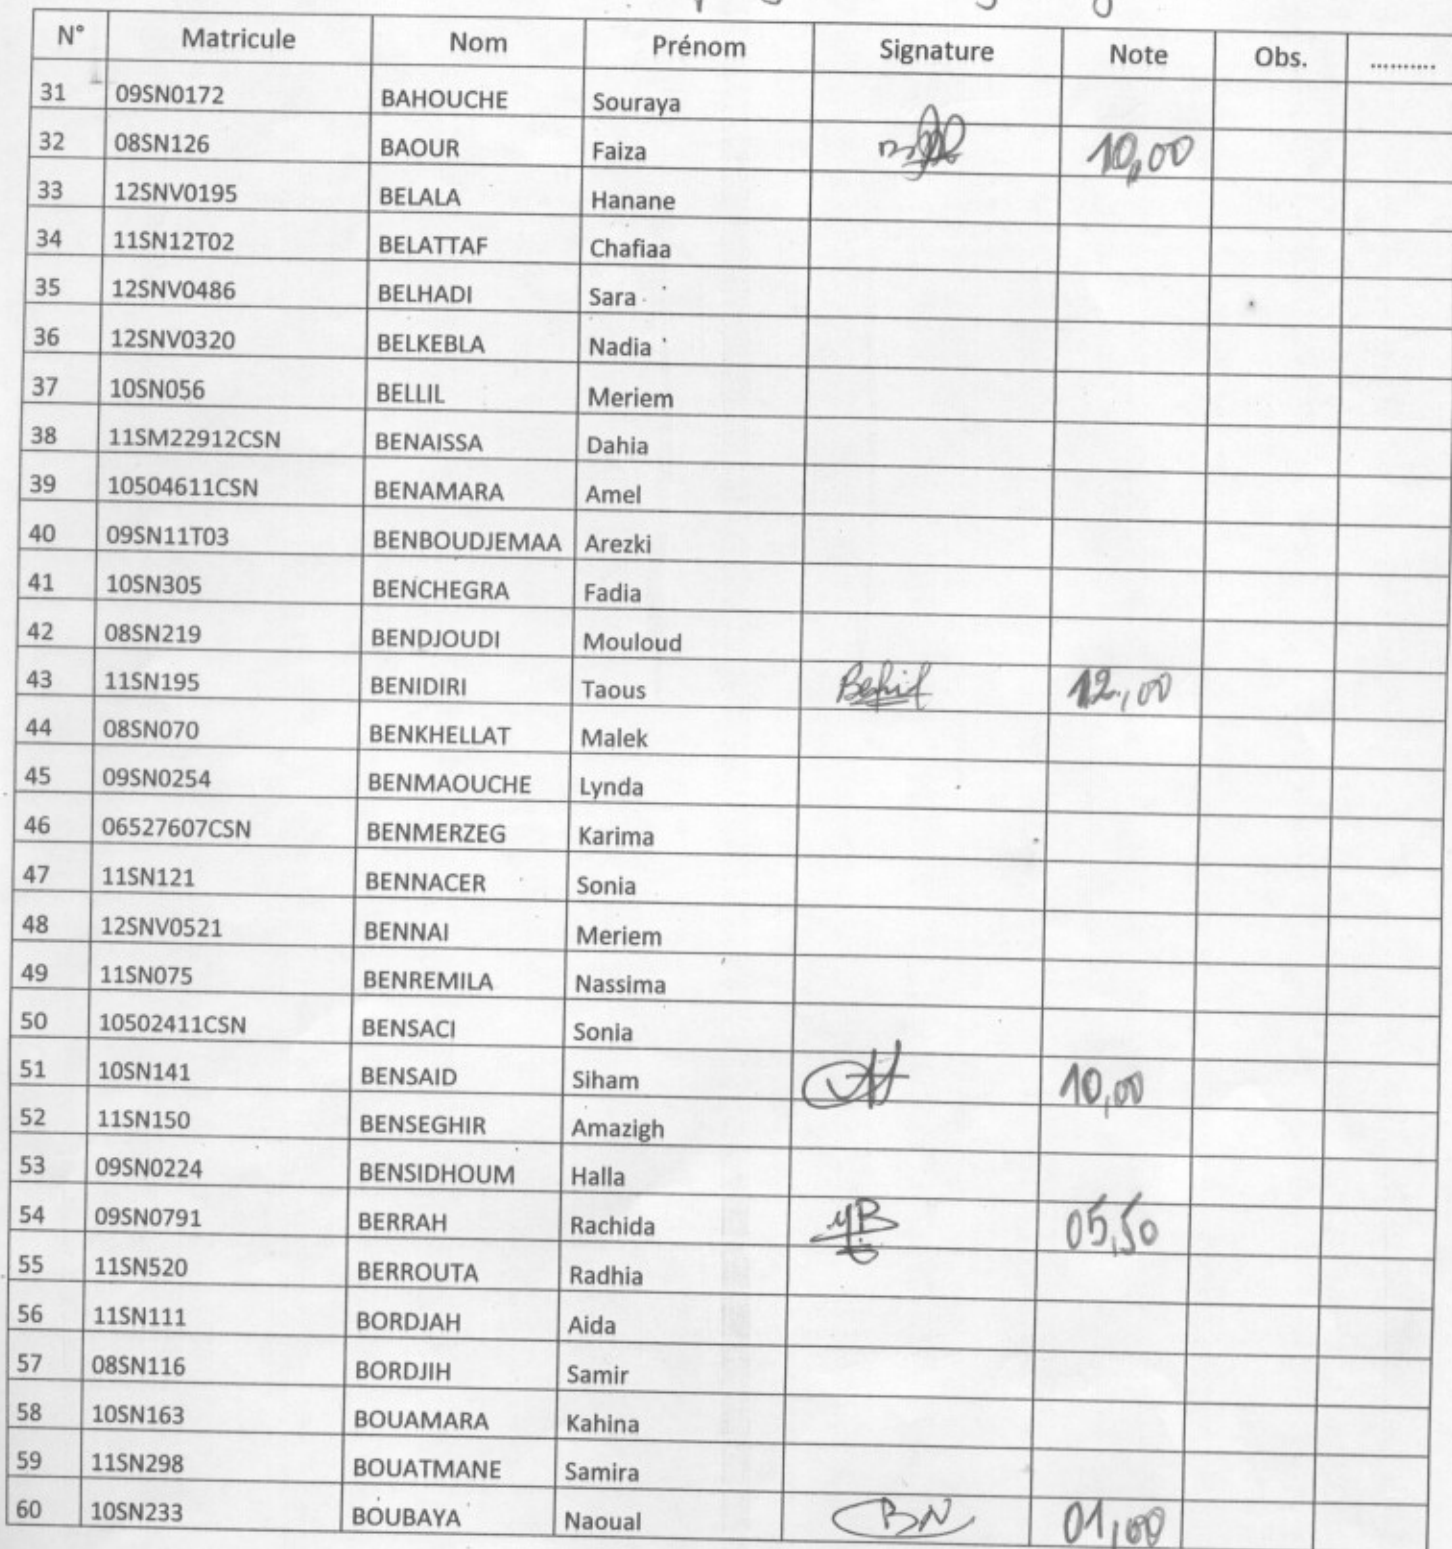 N° Matricule Nom Prénom Signature Note Obs. ..........
31 09SN0172 BAHOUCHE Souraya
32 08SN126 BAOUR Faiza 10,00
33 12SNV0195 BELALA Hanane
34 11SN12T02 BELATTAF Chafiaa
35 12SNV0486 BELHADI Sara
36 12SNV0320 BELKEBLA Nadia
37 10SN056 BELLIL Meriem
38 11SM22912CSN BENAISSA Dahia
39 10504611CSN BENAMARA Amel
40 09SN11T03 BENBOUDJEMAA Arezki
41 10SN305 BENCHEGRA Fadia
42 08SN219 BENDJOUDI Mouloud
43 11SN195 BENIDIRI Taous 12,00
44 08SN070 BENKHELLAT Malek
45 09SN0254 BENMAOUCHE Lynda
46 06527607CSN BENMERZEG Karima
47 11SN121 BENNACER Sonia
48 12SNV0521 BENNAI Meriem
49 11SN075 BENREMILA Nassima
50 10502411CSN BENSACI Sonia
51 10SN141 BENSAID Siham 10,00
52 11SN150 BENSEGHIR Amazigh
53 09SN0224 BENSIDHOUM Halla
54 09SN0791 BERRAH Rachida 05,50
55 11SN520 BERROUTA Radhia
56 11SN111 BORDJAH Aida
57 08SN116 BORDJIH Samir
58 10SN163 BOUAMARA Kahina
59 11SN298 BOUATMANE Samira
60 10SN233 BOUBAYA Naoual BN 01,00